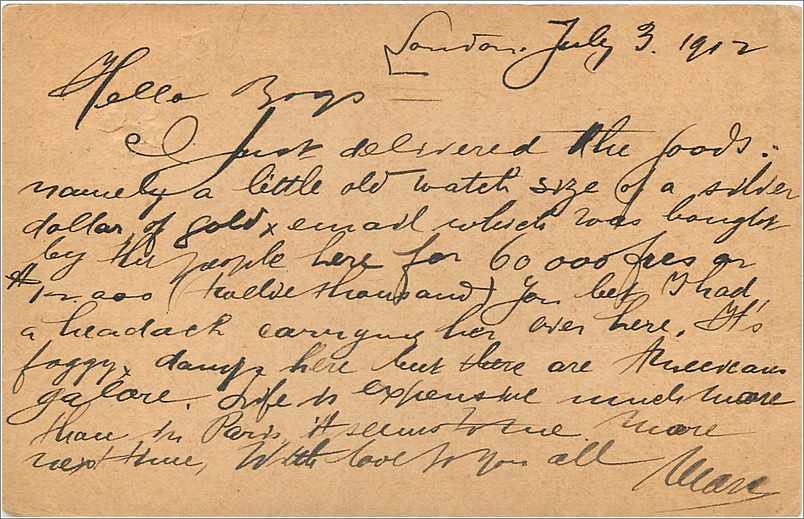 London, July 3. 1912
Hello Boys
I just delivered the goods:
namely a little old watch size of a silver
dollar, of gold x email which was bought
by the people here for 60 000 frcs or
$12.000 (twelve thousand) You bet I had
a headach carrying her over here. It's
foggy, damp here but there are Americans
galore. Life is expensive much more
than in Paris, it seems to me. More
next time, With love to you all
Marc